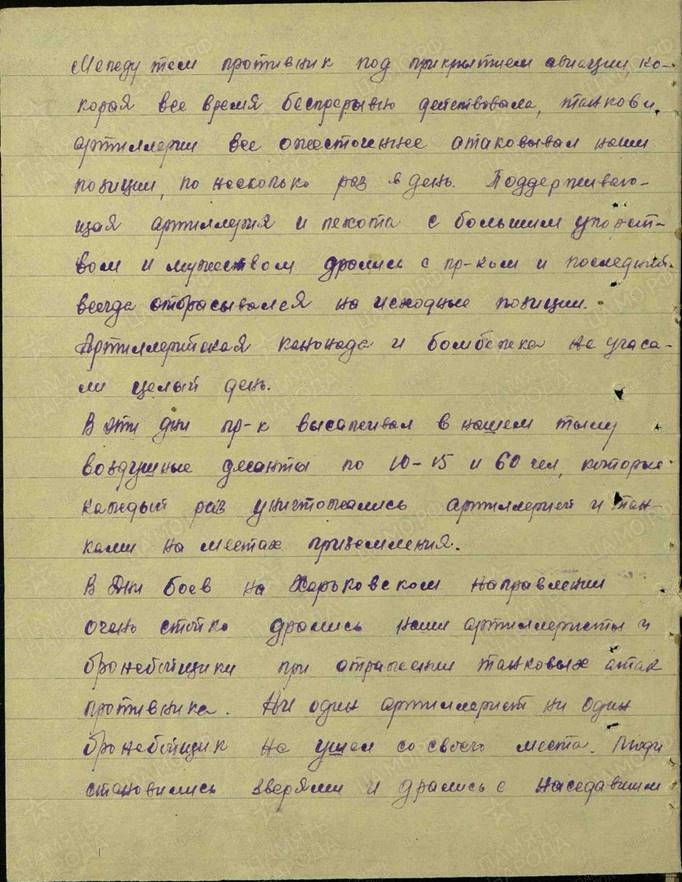 Между тем противник под прикрытием авиации, ко-
торая все время беспрерывно действовала, танков и
артиллерии все ожесточеннее атаковывал наши
позиции, по несколько раз в день. Поддерживаю-
щая артиллерия и пехота с большим упорст-
вом и мужеством дрались с пр-ком и последний
всегда отбрасывался на исходные позиции.
Артиллерийская канонада и бомбежка не угаса-
ли целый день.
В эти дни пр-к высаживал в нашем тылу
воздушные десанты по 10-15 и 60 чел, которые
каждый раз уничтожались артиллерией и тан-
ками на местах приземления.
В дни боев на Харьковском направлении
очень стойко дрались наши артиллеристы и
бронебойщики при отражении танковых атак
противника. Ни один артиллерист ни один
бронебойщик не ушел со своего места. Люди
становились зверями и дрались с наседавшим
ПАМЯТЬ НАРОДА
ЦАМО РФ